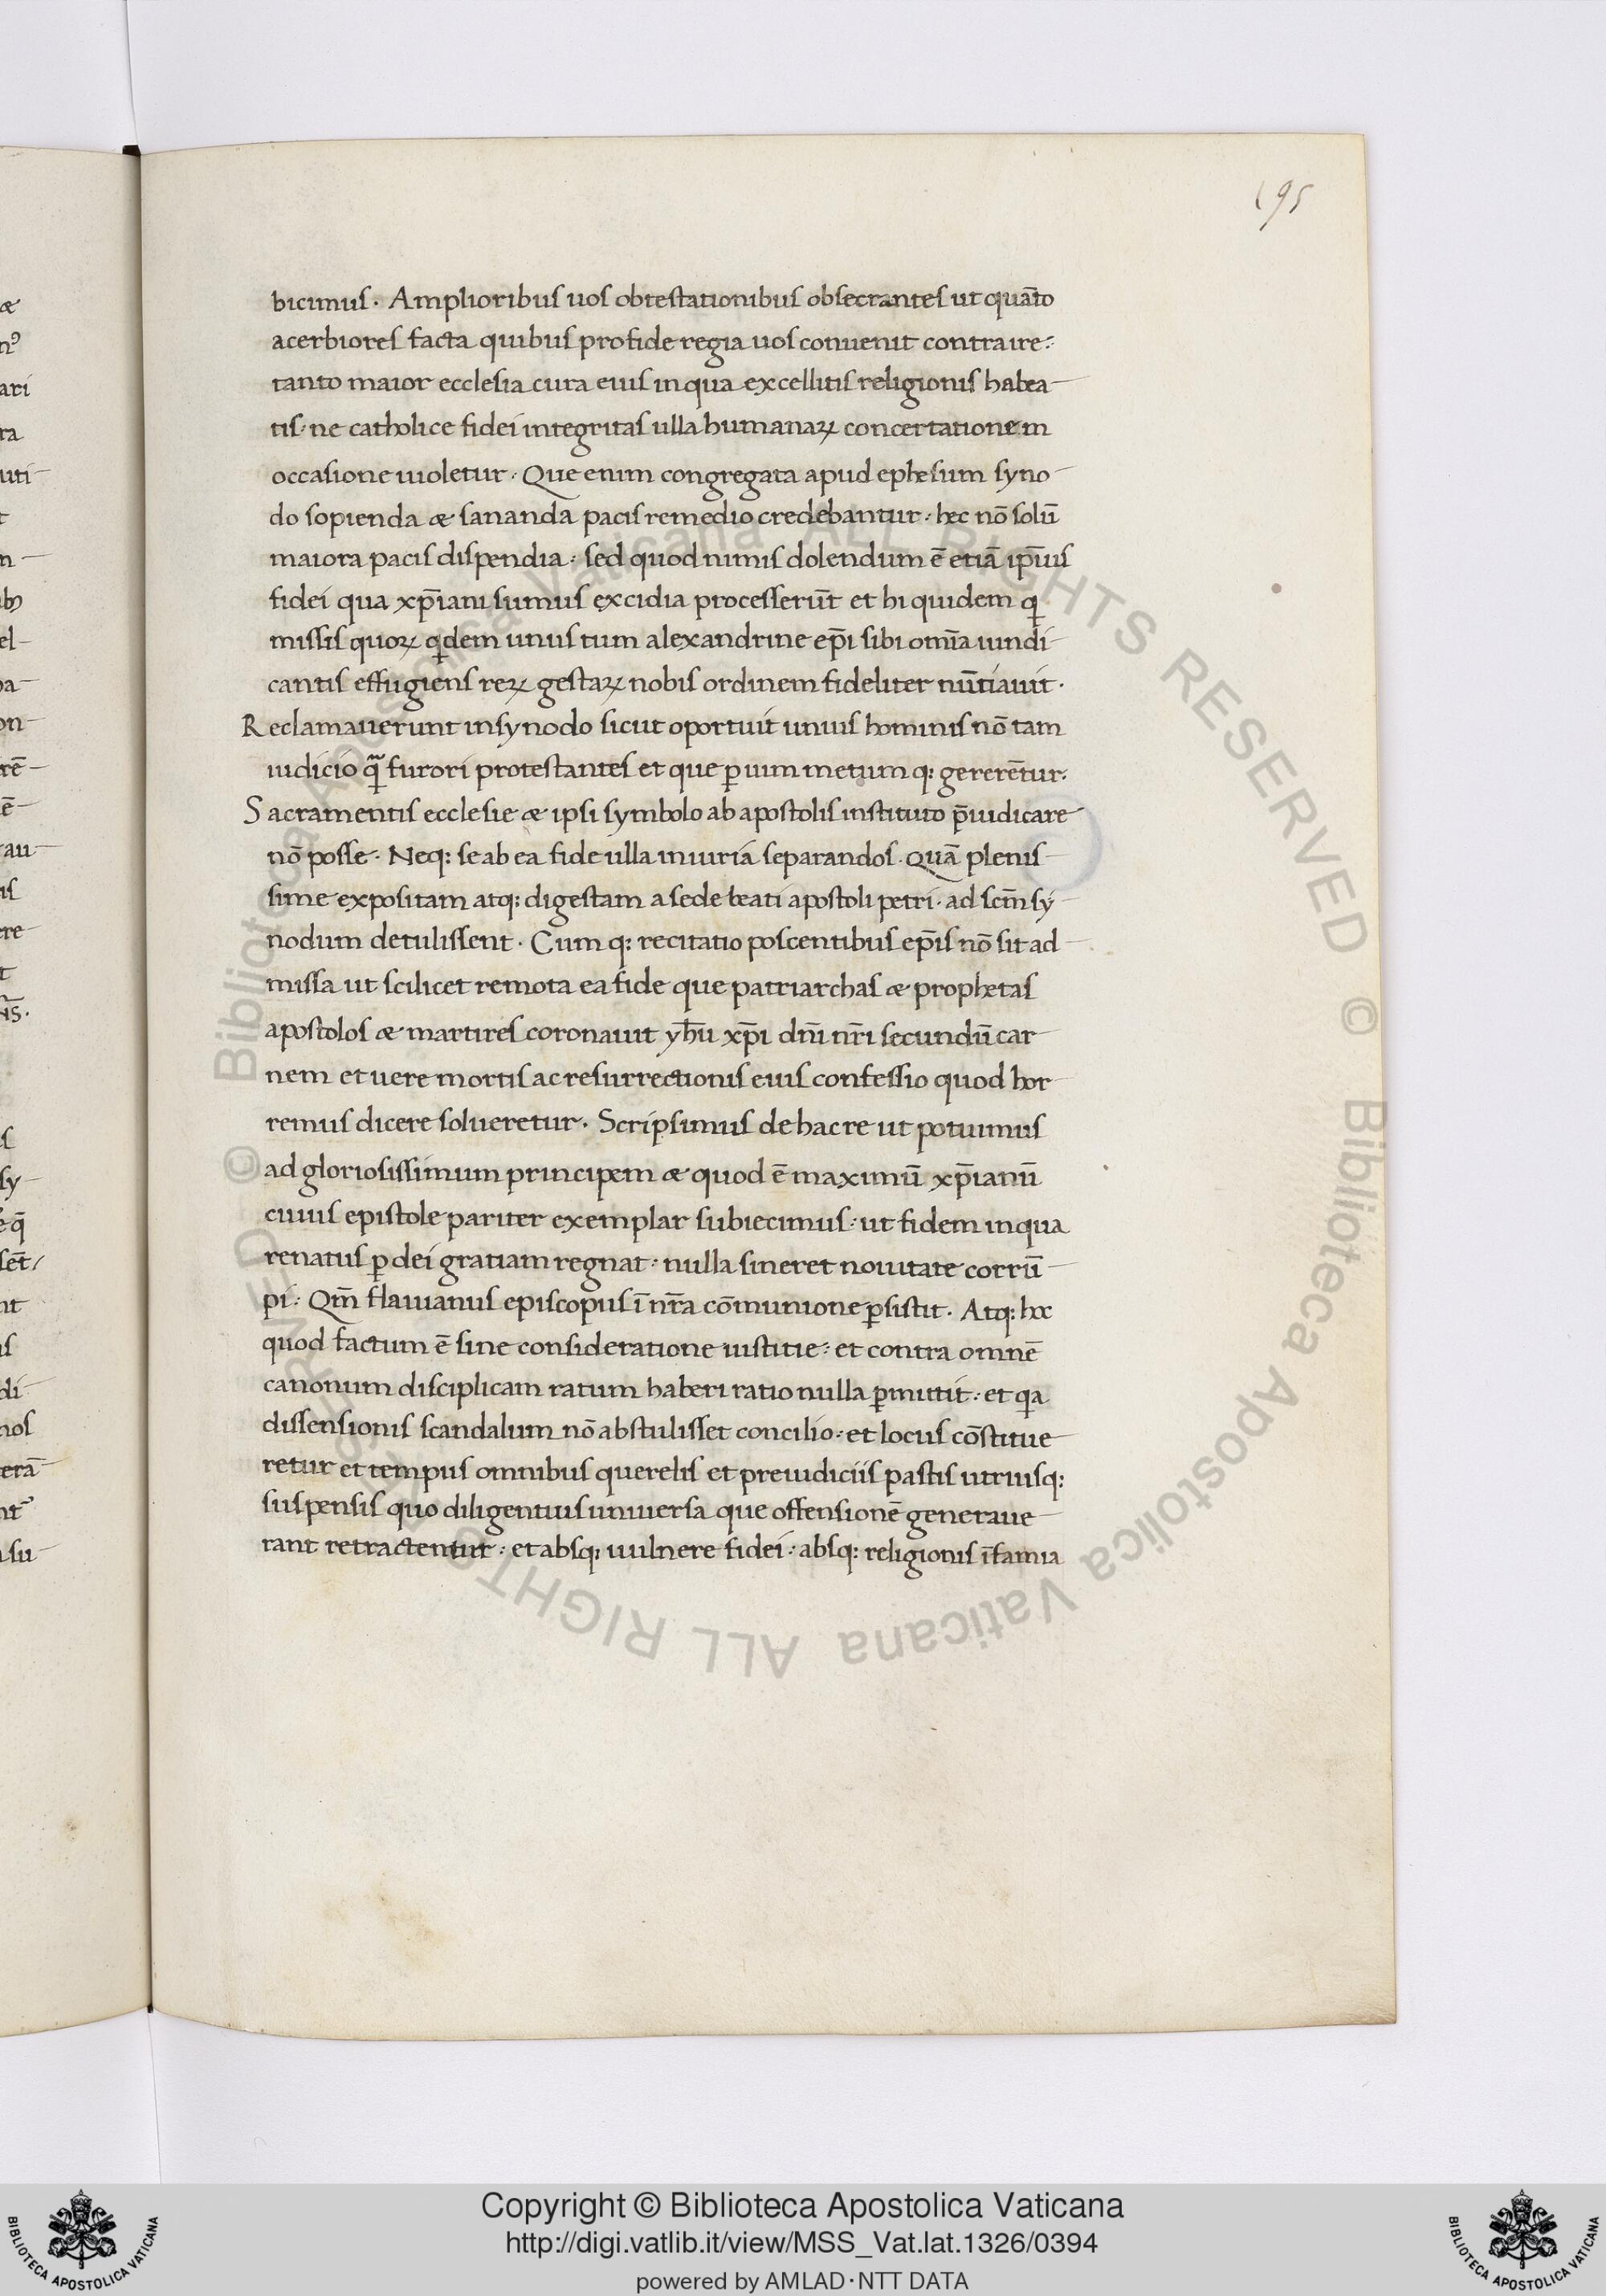 195
bicimus. Amplioribus uos obtestationibus obsecrantes ut quāto
acerbiores facta quibus pro fide regia uos conuenit contraire:
tanto maior ecclesia cura eius in qua excellitis religionis habea-
tis. ne catholice fidei integritas ulla humanaꝝ concertationem
occasione uioletur. Que enim congregata apud ephesum syno-
do sopienda & sananda pacis remedio credebantur: hec nō solū
maiora pacis dispendia: sed quod nimis dolendum ē etiā ip̄ius
fidei qua xp̄iani sumus excidia processerūt et hi quidem qi
missis quoꝝ qidem unus tum alexandrine ep̄i sibi omīa uindi-
cantis effugiens reꝝ gestaꝝ nobis ordinem fideliter nūtiauit.
Reclamauerunt in synodo sicut oportuit unius hominis nō tam
iudicio qᷓ furori protestantes et que ꝑ uim metum q: gererētur.
Sacramentis ecclesie & ipsi symbolo ab apostolis instituto p̄iudicare
nō posse. Neq: se ab ea fide ulla iniuria separandos. Quā plenis-
sime expositam atq: digestam a sede beati apostoli petri. ad scm̄ sy-
nodum detulissent. Cum q: recitatio poscentibus ep̄is nō sit ad-
missa ut scilicet remota ea fide que patriarchas & prophetas
apostolos & martires coronauit yhū xp̄i dn̄i nr̄i secundū car-
nem et uere mortis ac resurrectionis eius confessio quod hor-
remus dicere solueretur. Scripsimus de hac re ut potuimus
ad gloriosissimum principem & quod ē maximū xp̄ianū
cuius epistole pariter exemplar subiecimus: ut fidem in qua
renatus ꝑ dei gratiam regnat: nulla sineret nouitate corrū-
pi: Qm̄ flauianus episcopus ī nr̄a cōmunione ꝑsistit. Atq: hoc
quod factum ē sine consideratione iustitie: et contra omnē
canonum disciplicam ratum haberi ratio nulla ꝑmittit: et qia
dissensionis scandalum nō abstulisset concilio: et locus cōstitue-
retur et tempus omnibus querelis et preiudiciis pastis utriusq:
suspensis quo diligentius uniuersa que offensionē generaue-
rant retractentur: et absq: uulnere fidei: absq: religionis īfamia
Copyright © Biblioteca Apostolica Vaticana
http://digi.vatlib.it/view/MSS_Vat.lat.1326/0394
powered by AMLAD·NTT DATA
BIBLIOTECA APOSTOLICA VATICANA
BIBLIOTECA APOSTOLICA VATICANA
© Biblioteca Apostolica Vaticana ALL RIGHTS RESERVED © Biblioteca Apostolica Vaticana ALL RIGHTS RESERVED